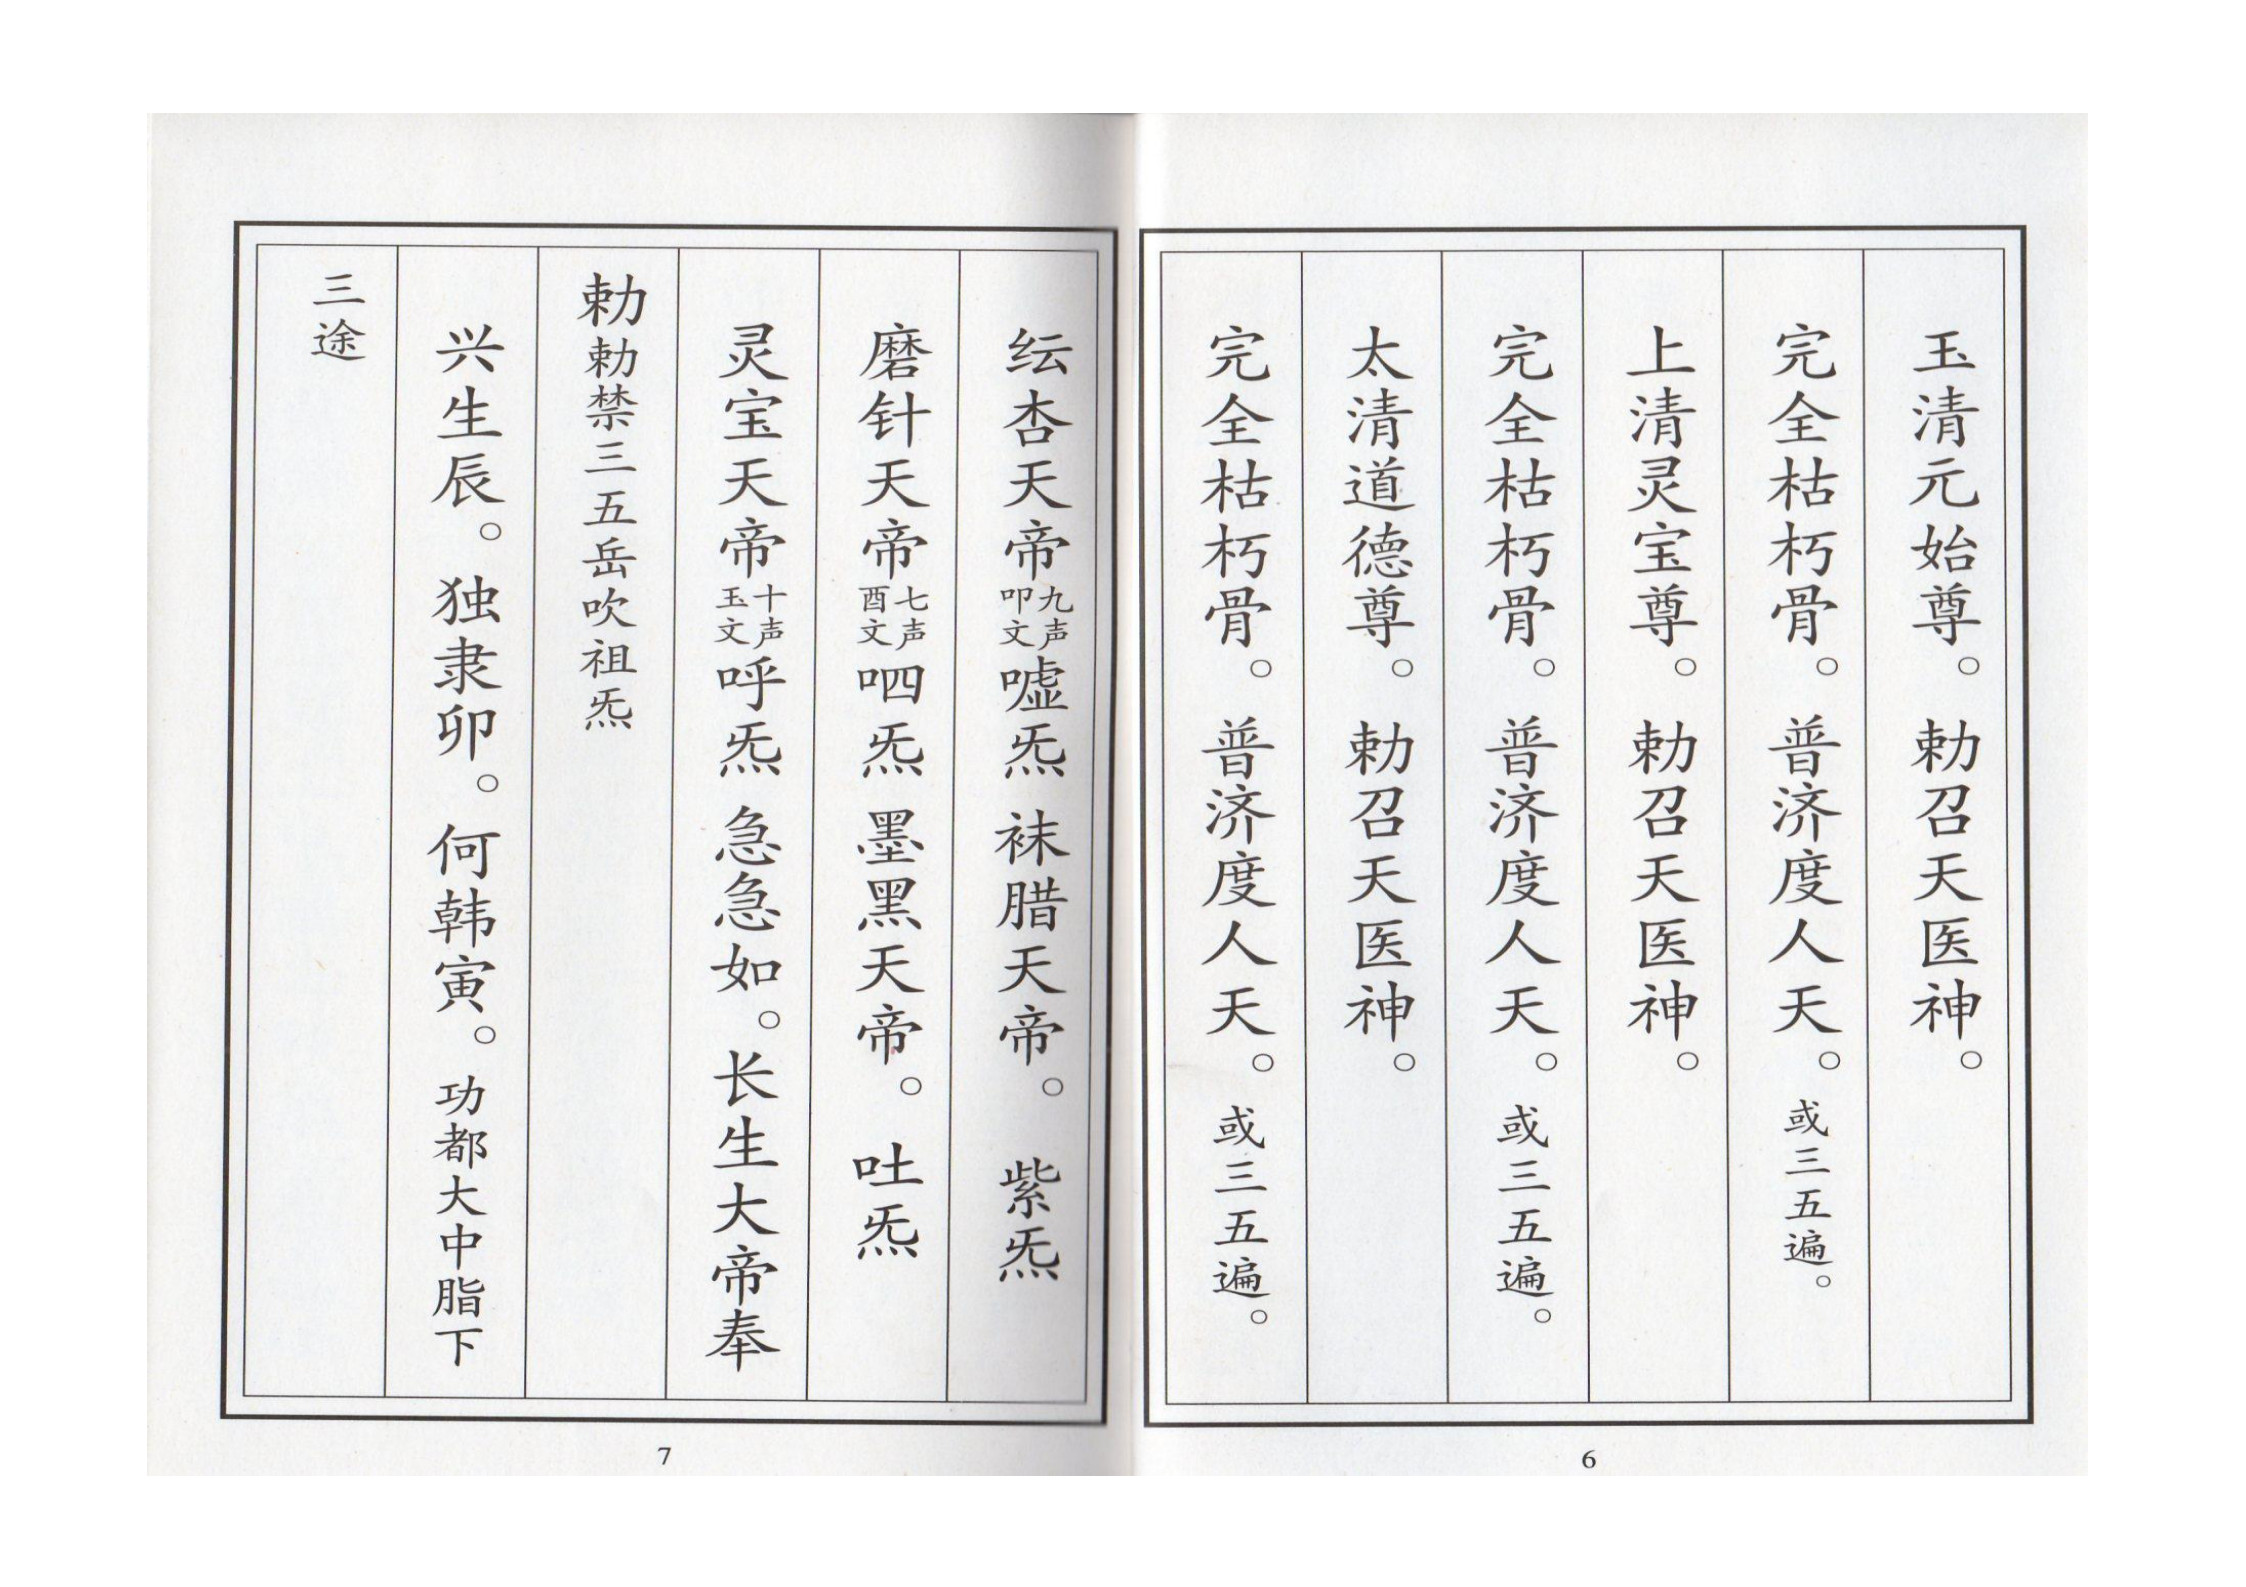 玉清元始尊。勅召天医神。
完全枯朽骨。普济度人天。或三五遍。
上清灵宝尊。勅召天医神。
完全枯朽骨。普济度人天。或三五遍。
太清道德尊。勅召天医神。
完全枯朽骨。普济度人天。或三五遍。
6
纭杏天帝九声叩文嘘炁 袜腊天帝。紫炁
磨针天帝七声酉文呬炁 墨黑天帝。吐炁
灵宝天帝十声玉文呼炁 急急如。长生大帝奉
勅勅禁三五岳吹祖炁
兴生辰。独隶卯。何韩寅。功都大中脂下
三途
7